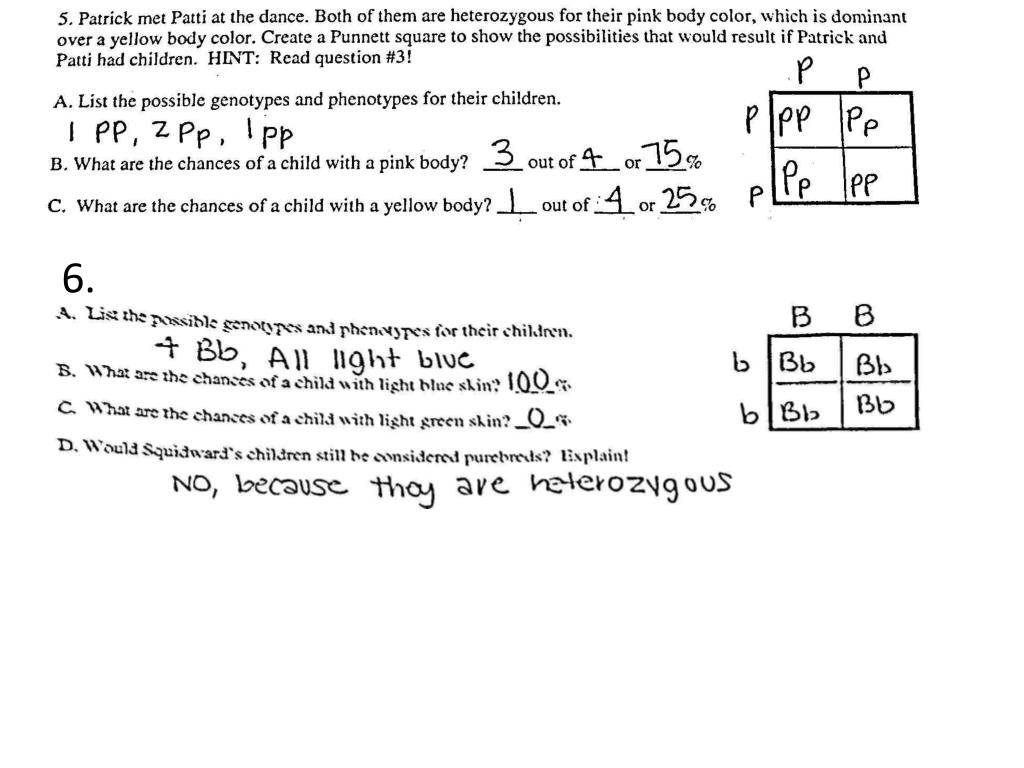 5. Patrick met Patti at the dance. Both of them are heterozygous for their pink body color, which is dominant
over a yellow body color. Create a Punnett square to show the possibilities that would result if Patrick and
Patti had children. HINT: Read question #3!
P p
A. List the possible genotypes and phenotypes for their children.
P PP Pp
1 PP, 2 Pp, 1 pp
B. What are the chances of a child with a pink body? 3 out of 4 or 75%
p Pp pp
C. What are the chances of a child with a yellow body? 1 out of 4 or 25%
6.
A. List the possible genotypes and phenotypes for their children.
B B
4 Bb, All light blue
b Bb Bb
B. What are the chances of a child with light blue skin? 100%
C. What are the chances of a child with light green skin? 0%
b Bb Bb
D. Would Squidward's children still be considered purebreds? Explain!
NO, because they are heterozygous